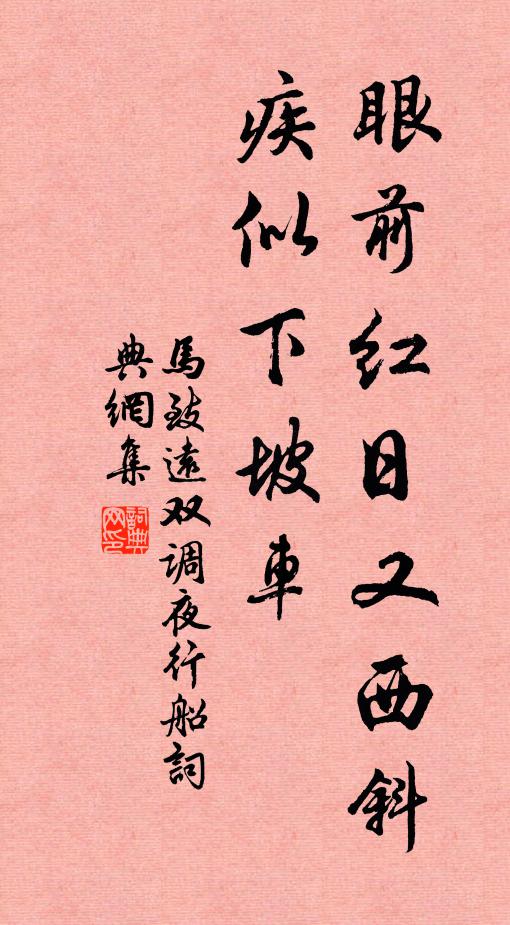 眼前红日又西斜
疾似下坡車
馬致遠双调夜行船詞
典網集
詞典网印